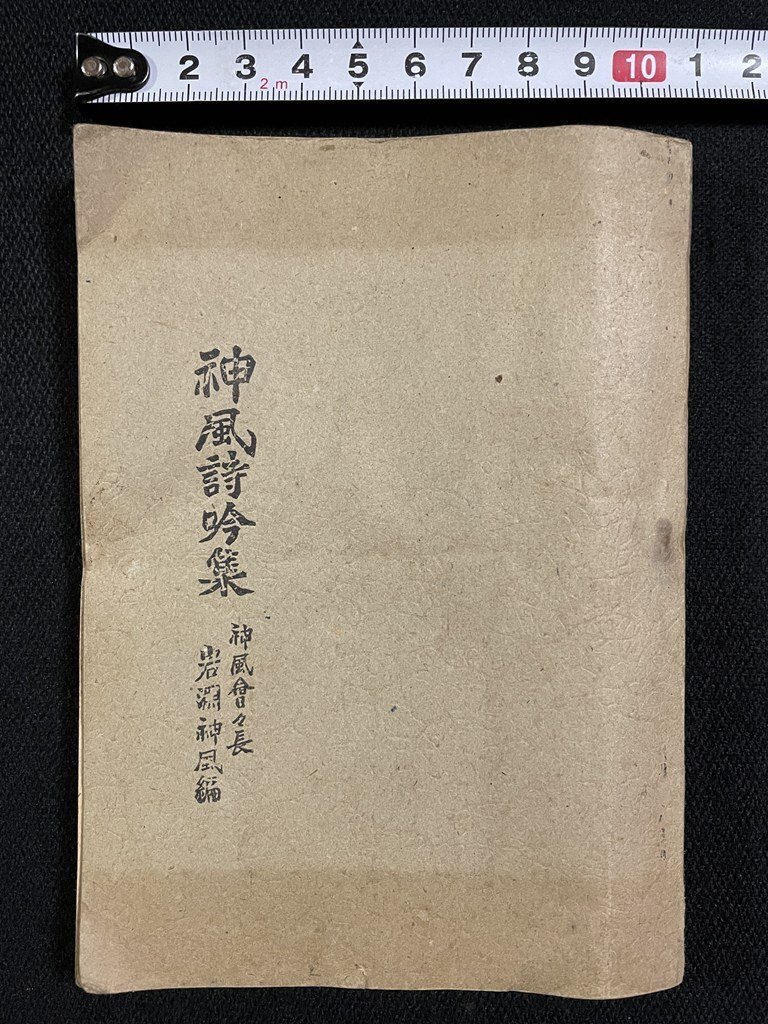 2 3 4 5 6 7 8 9 10 1 2
2 m
神風詩吟集
神風會々長
岩渕神風編